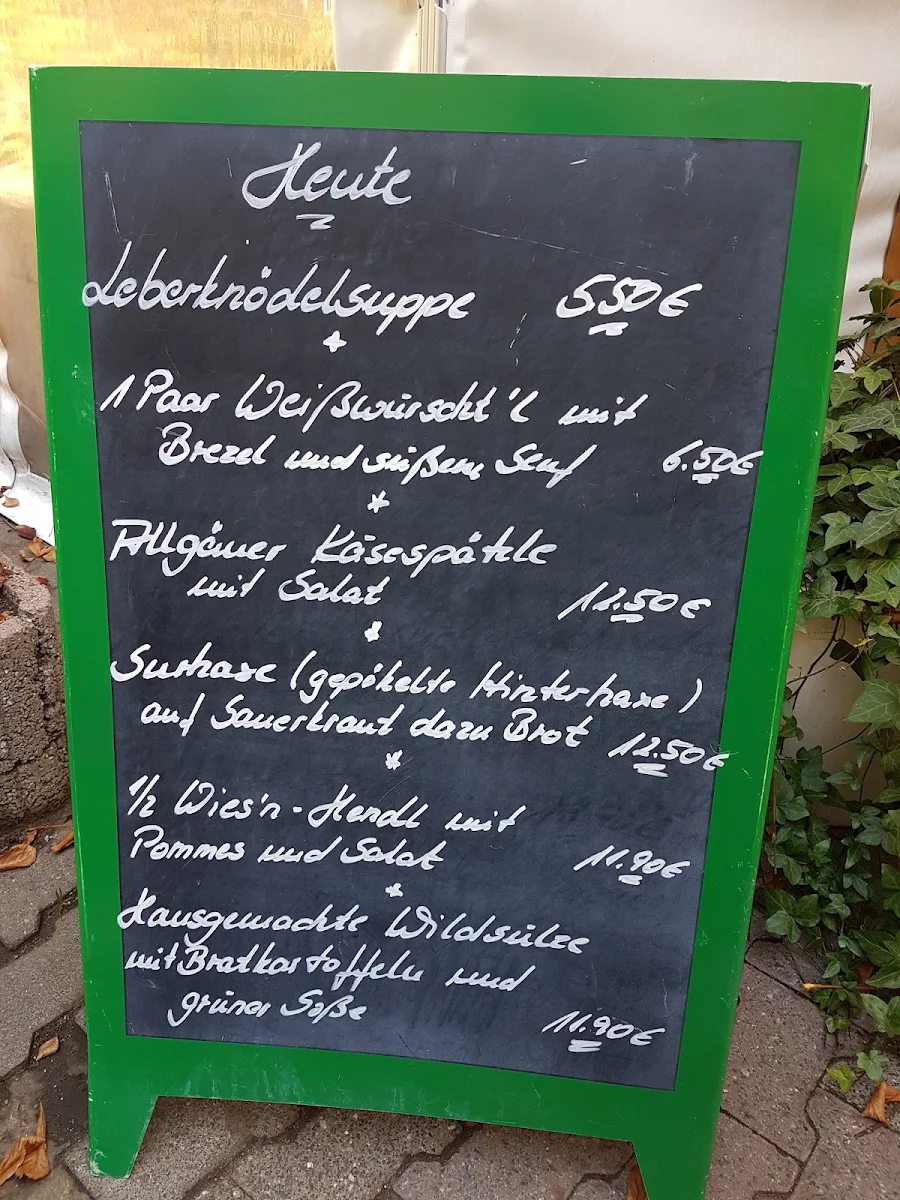 Heute
Leberknödelsuppe 5.50€
*
1 Paar Weißwürscht'l mit
Brezel und süßem Senf 6.50€
*
Allgäuer Käsespätzle
mit Salat 11.50€
*
Surhaxe (gepökelte Hinterhaxe)
auf Sauerkraut dazu Brot 12.50€
*
1/2 Wies'n-Hendl mit
Pommes und Salat 11.90€
*
Hausgemachte Wildsülze
mit Bratkartoffeln und
grüner Soße 11.90€